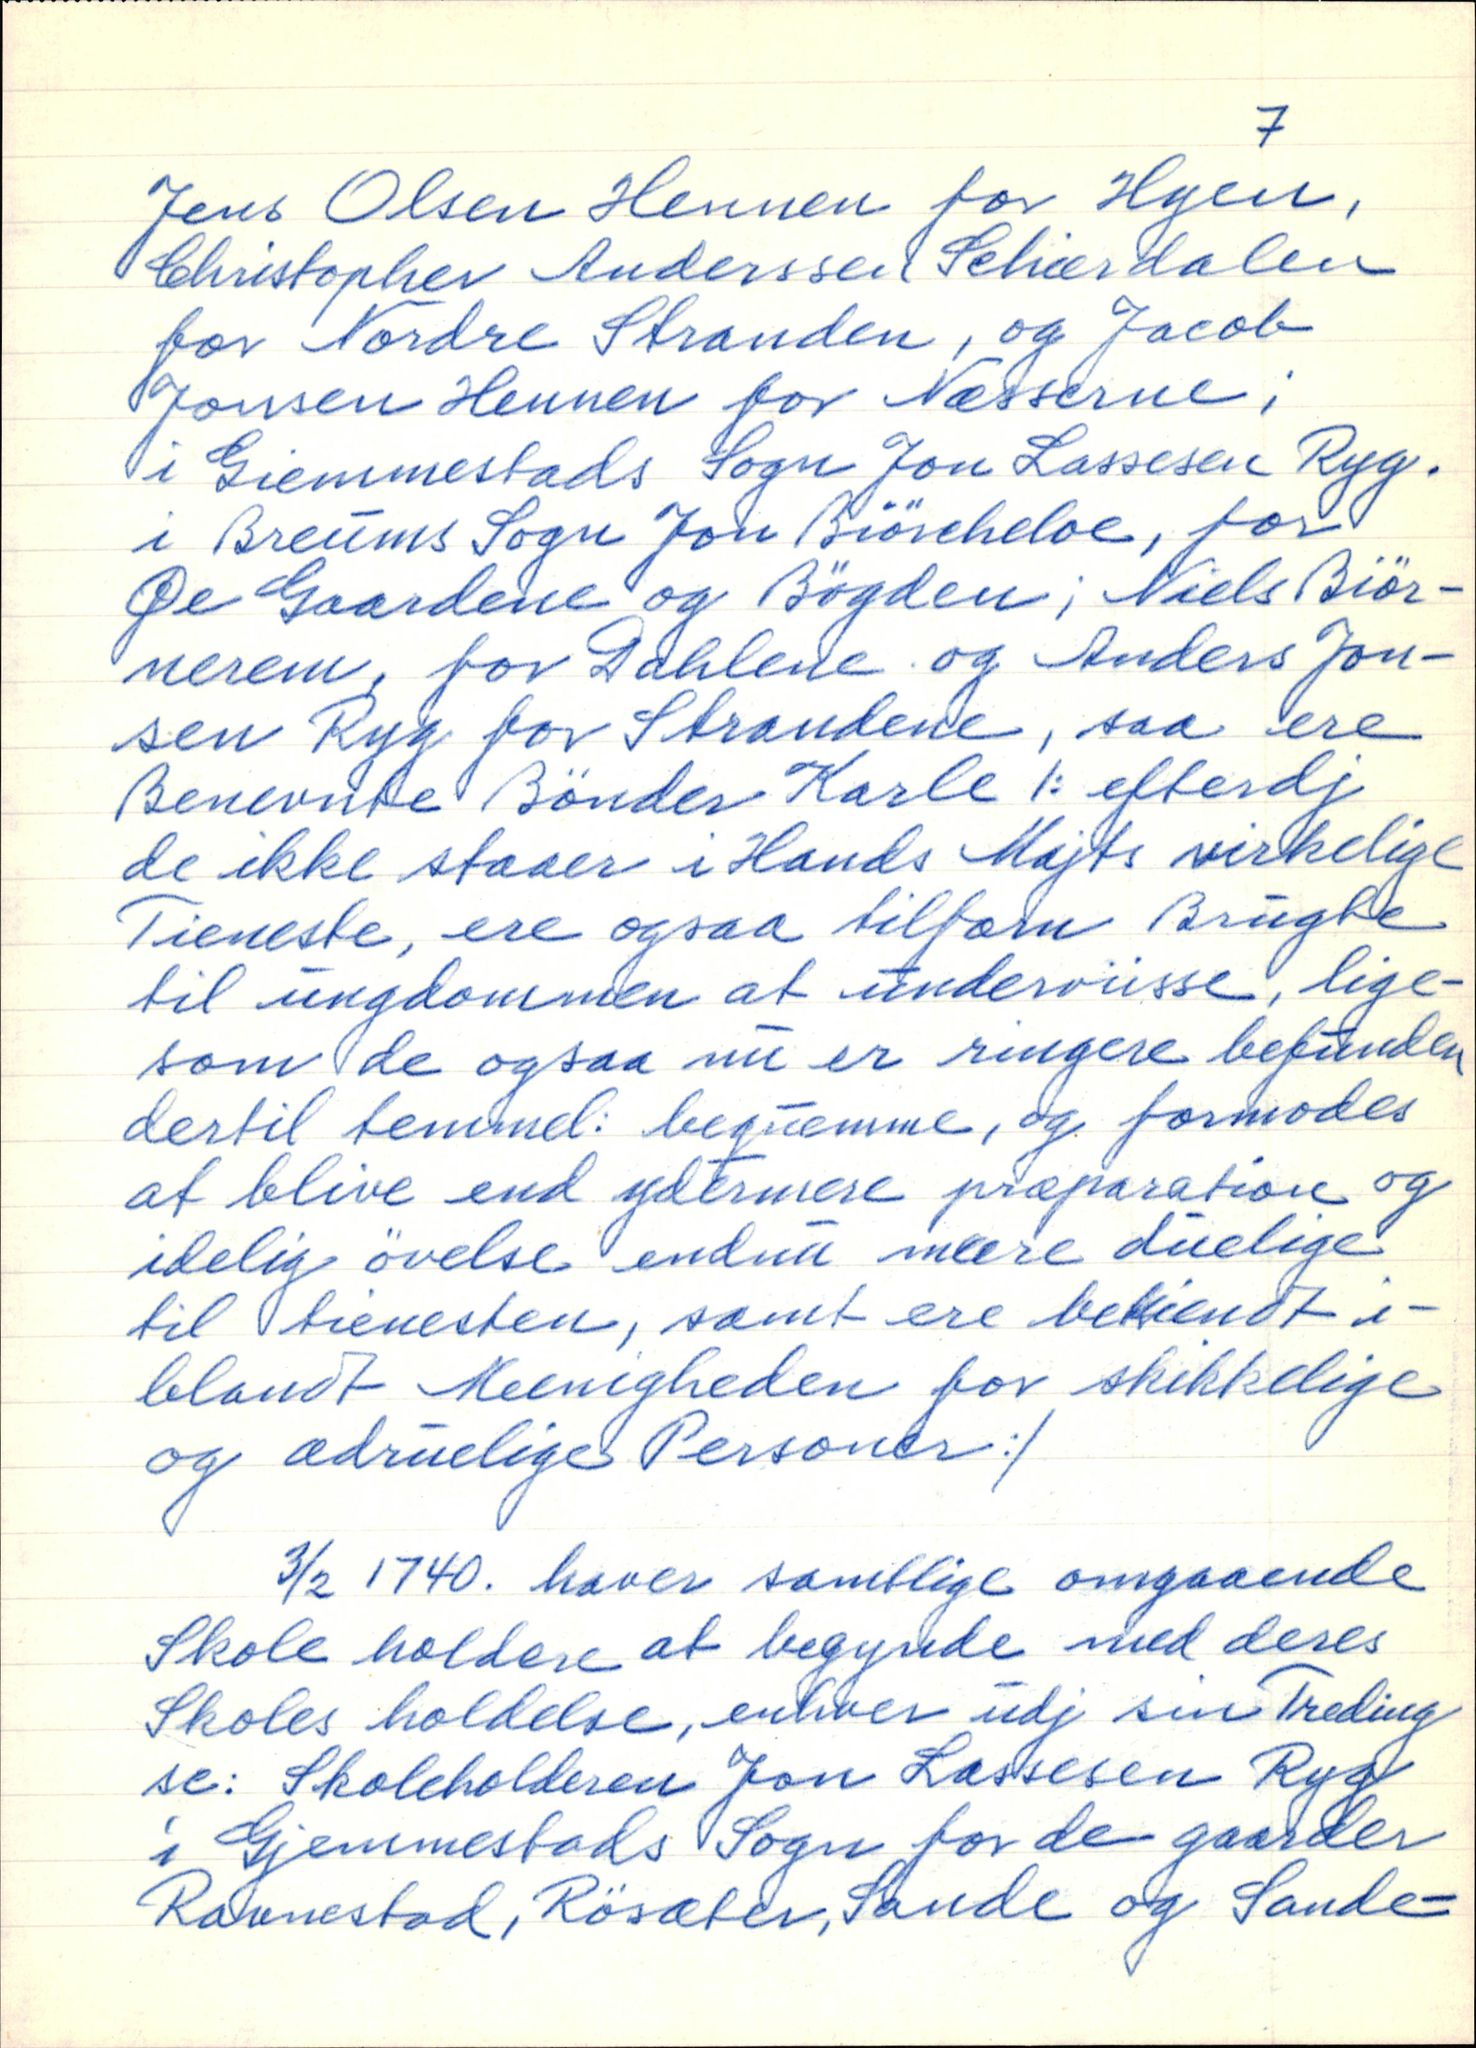 7
Jens Olsen Hennen for Hyen,
Christopher Anderssen Schiærdalen
for Nordre Stranden, og Jacob
Jonsen Hennen for Næsserne;
i Giemmestads Sogn Jon Lassesen Ryg.
i Breums Sogn Jon Biörcheloe, for
Øe Gaardene og Bögden; Niels Biör-
nerem, for Dahlene og Anders Jon-
sen Ryg for Strandene, saa ere
Benevnte Bönder Karle /: efterdj
de ikke staaer i Hands Majts virkelige
Tieneste, ere ogsaa tilforn Brugte
til ungdommen at underviisse, lige-
som de ogsaa nu er ringere befunden
dertil temmel: bequemme, og formodes
at blive end ydermere præparation og
idelig övelse endnu meere duelige
til tienesten, samt ere bekiendt i-
blandt Meenigheden for skikkelige
og ædruelige Personer :/
3/2 1740. haver samtlige omgaaende
Skole holdere at begynde med deres
Skoles holdelse, enhver udj sin Treding
sc: Skoleholderen Jon Lassesen Ryg
i Gjemmestads Sogn for de gaarder
Ravnestad, Rösæter, Sande og Sande-